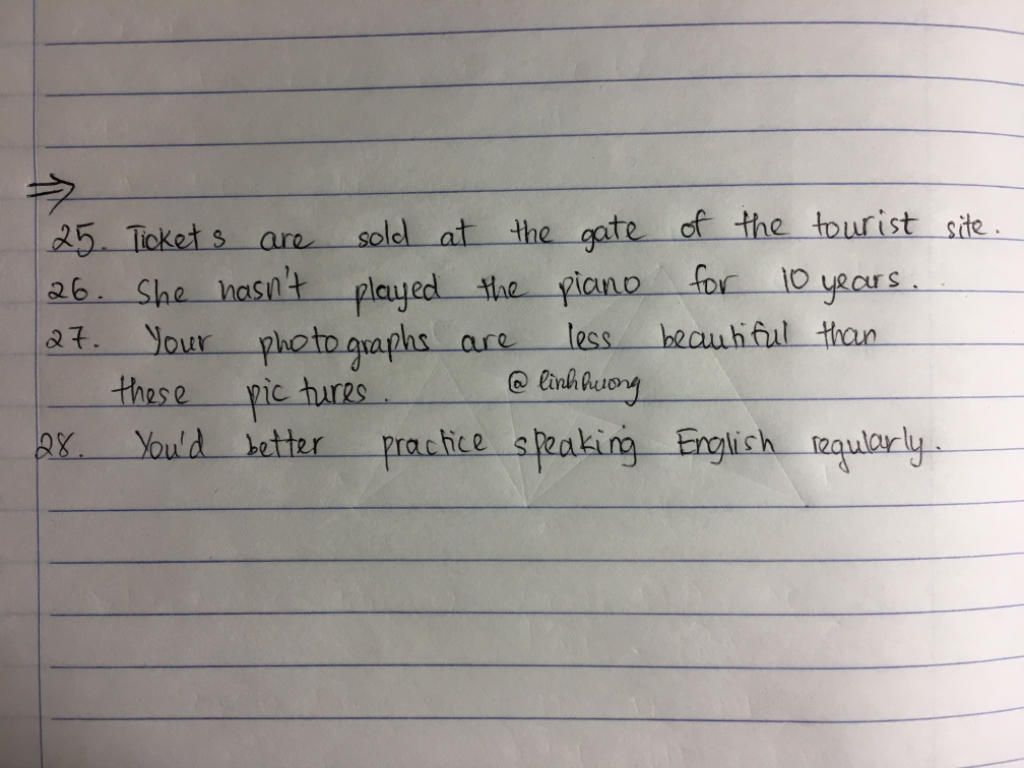 ⇒
25. Tickets are sold at the gate of the tourist site.
26. She hasn't played the piano for 10 years.
27. Your photographs are less beautiful than
these pictures. @linhhuong
28. You'd better practice speaking English regularly.